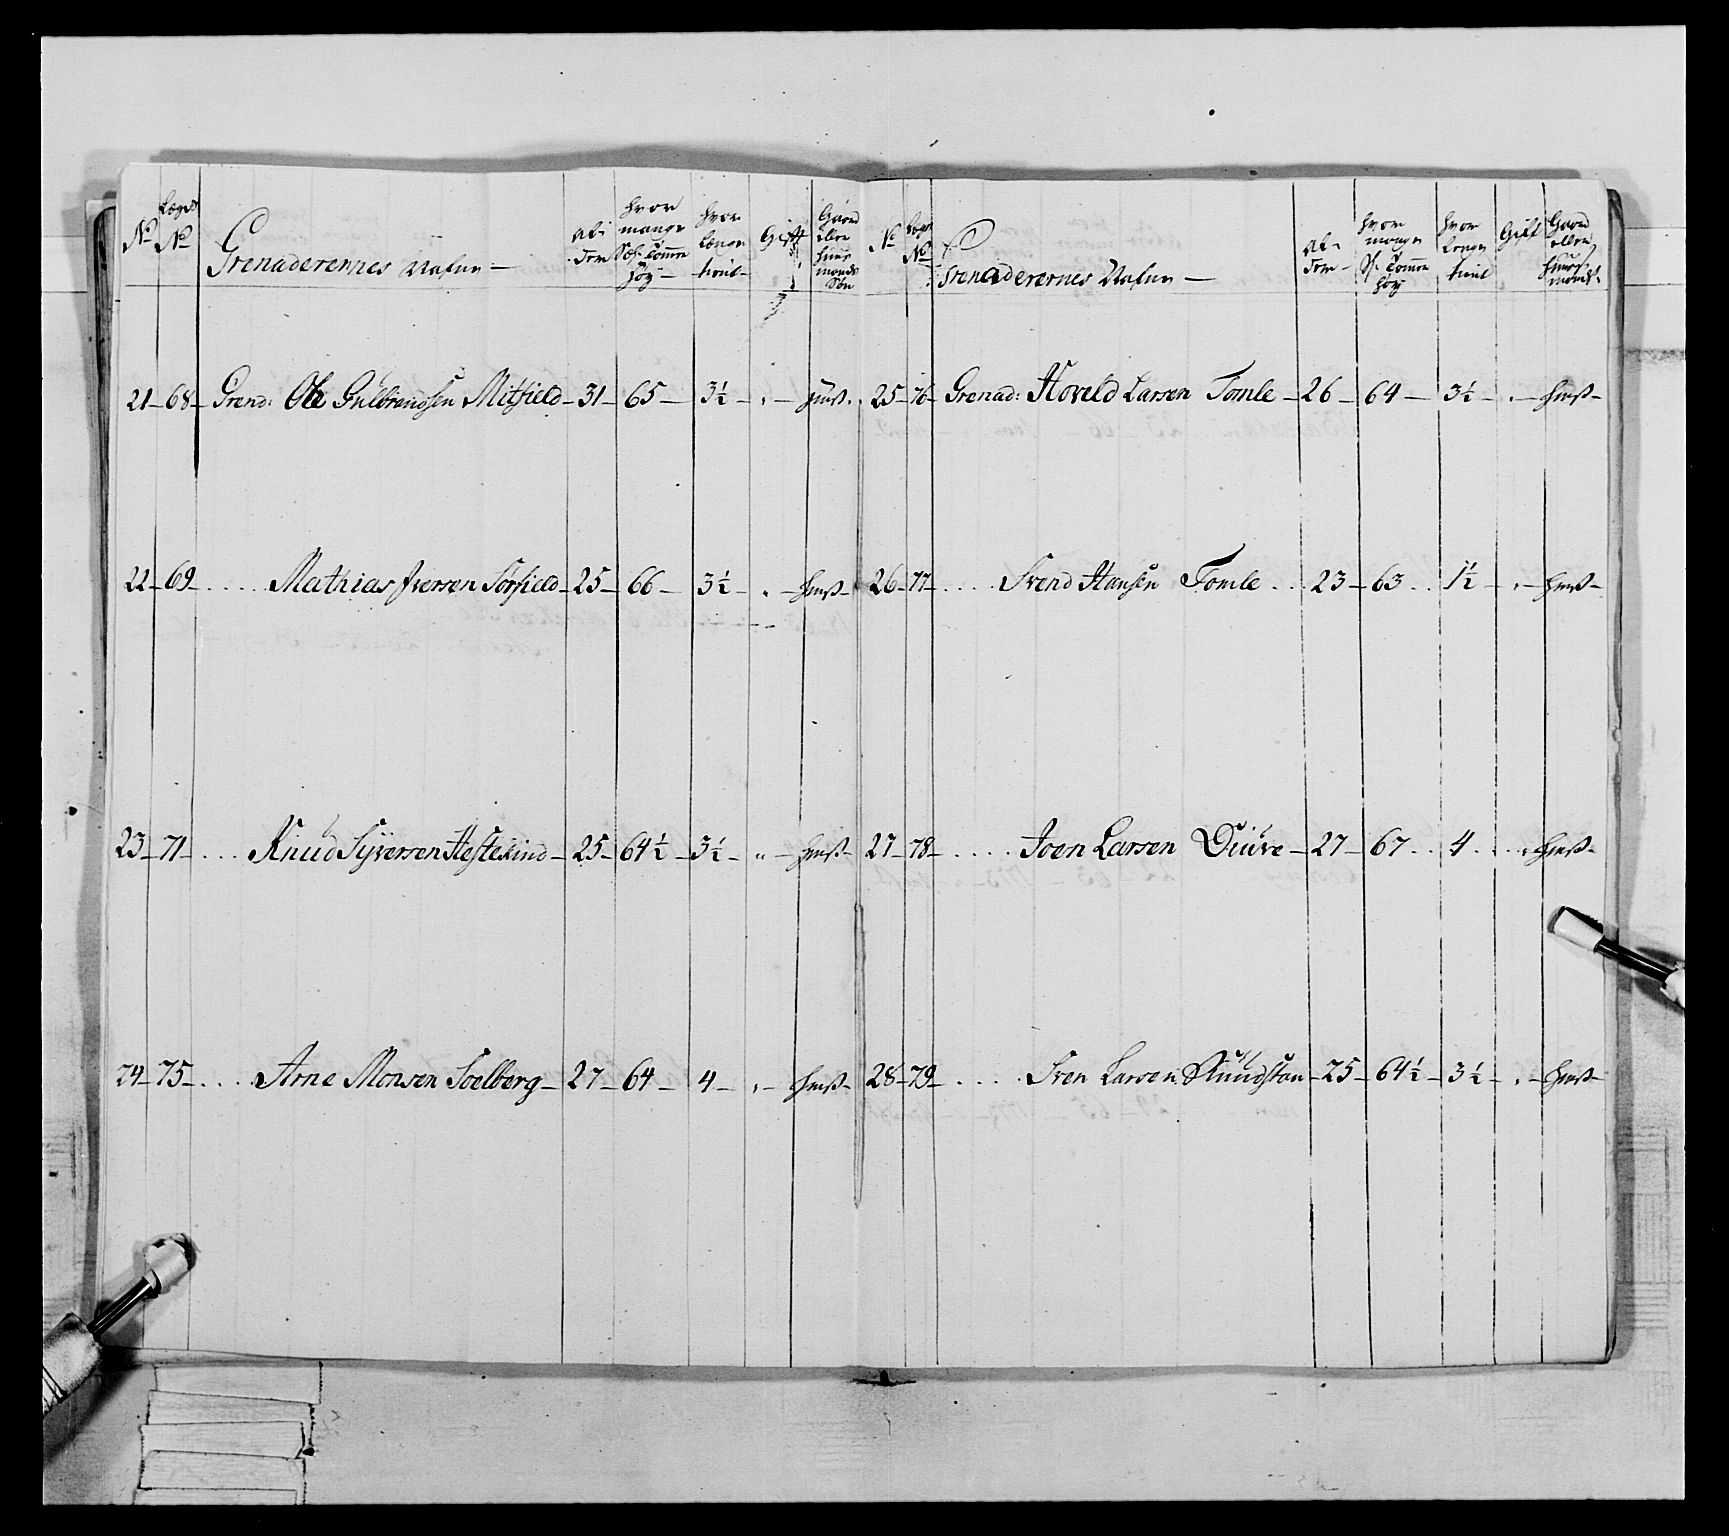 No Lægds No Grenaderernes Nafne — Al- der hvor mange Sch: Tommer høy — hvor længe tient — Gift Gaard eller huus mands Søn
21 — 68 — Grend: Ole Gulbrandsen Mitfield — 31 — 65 — 3½ — " — huusß.
22 — 69 — .... Mathias Iversen Sørfield — 25 — 66 — 3½ — " — huusß —
23 — 71 — .... Knud Syversen Hestekind — 25 — 64½ — 3½ — " — huusß —
24 — 75 — .... Arne Monsen Soelberg — 27 — 64 — 4 — " — huusß —
No Lægds No Grenaderernes Nafne — Al- der — hvor mange S: Tommer høy hvor længe tient Gift Gaard eller huus mands
25 — 76 — Grenad: Hoveld Larsen Tomle — 26 — 64 — 3½ — " — huusß —
26 — 77 — .... Svend Hansen Tomle .. 23 — 63 .. 1½ — " — huusß —
27 — 78 — .... Joen Larsen Diuve — 27 — 67 .. 4 . . " huusß —
28 — 79 — .... Sven Larsen Rundstau — 25 — 64½ — 3½ — " — huusß —